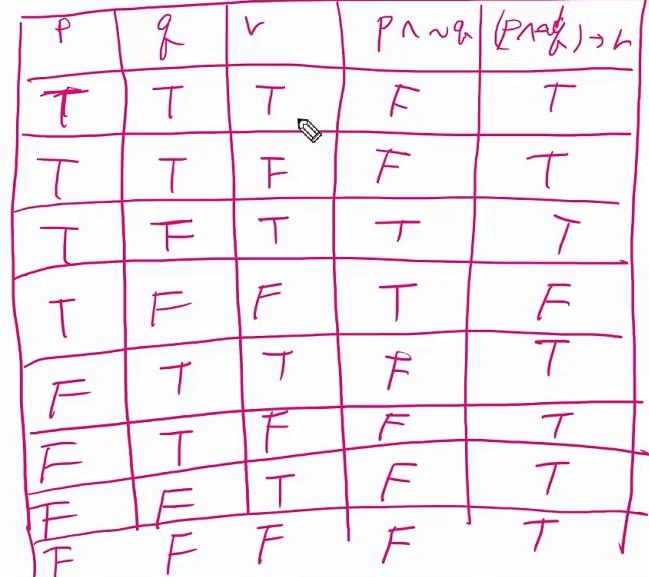 p q r p ∧ ~q (p∧~q) → r
T T T F T
T T F F T
T F T T T
T F F T F
F T T F T
F T F F T
F F T F T
F F F F T